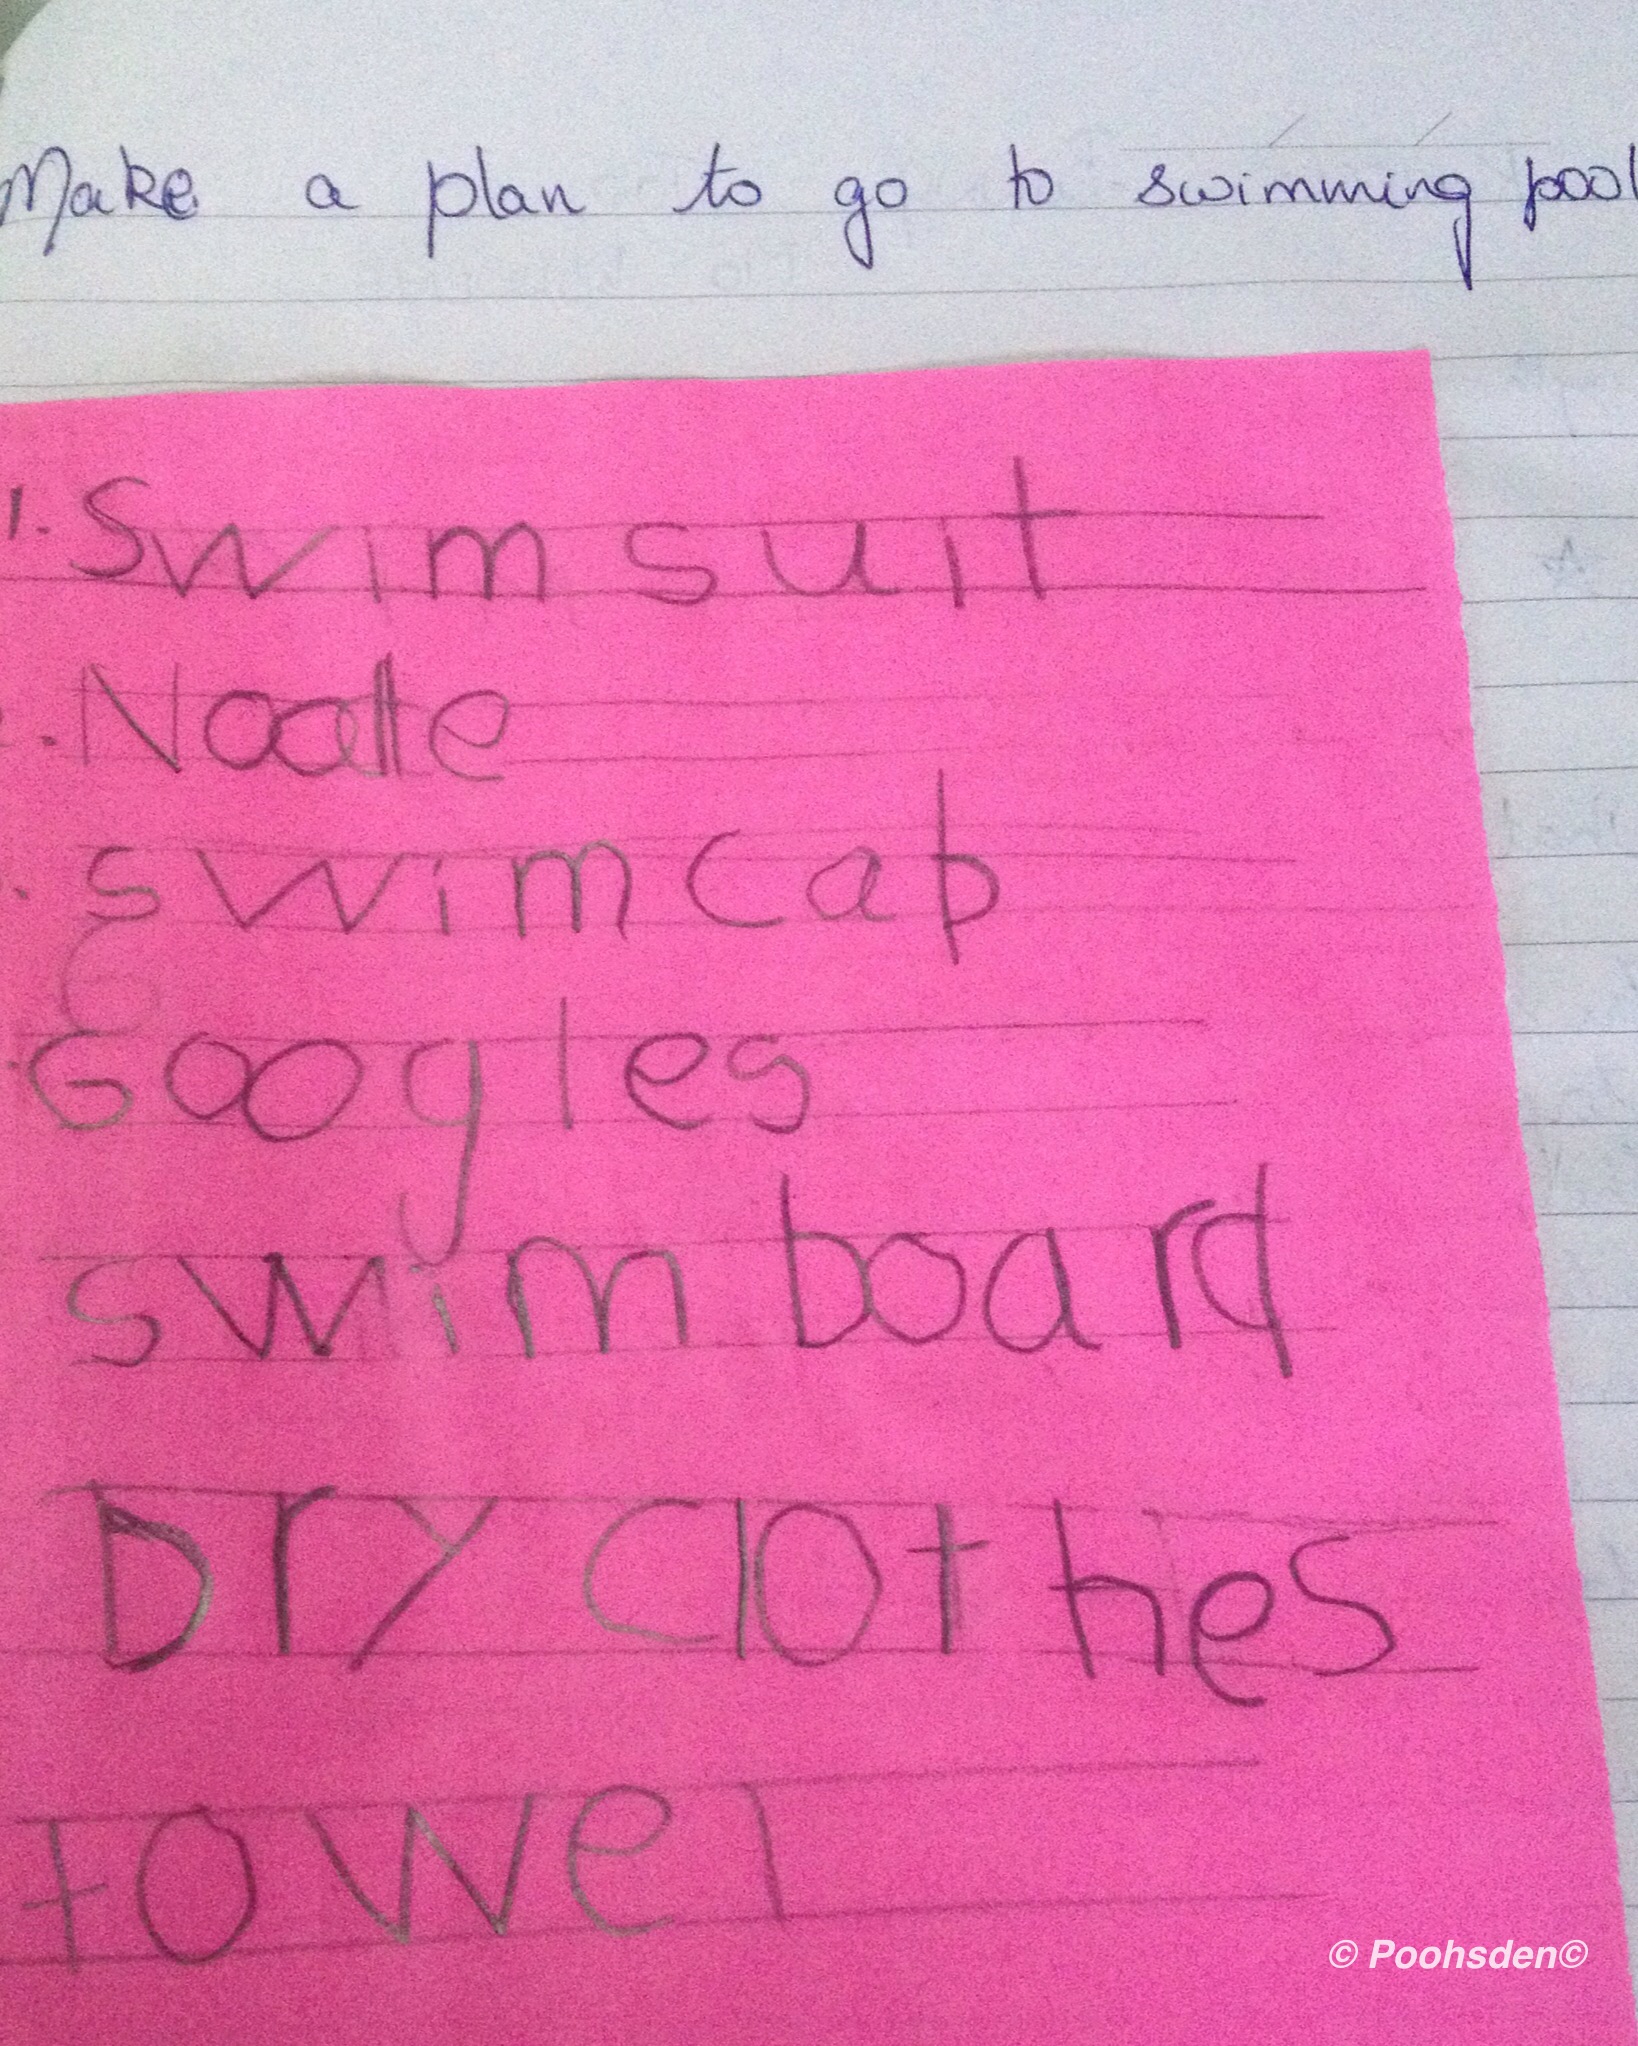 Make a plan to go to swimming pool
1. Swim suit
. Noodle
. swim cap
. Googles
swim board
Dry clothes
towel
© Poohsden©